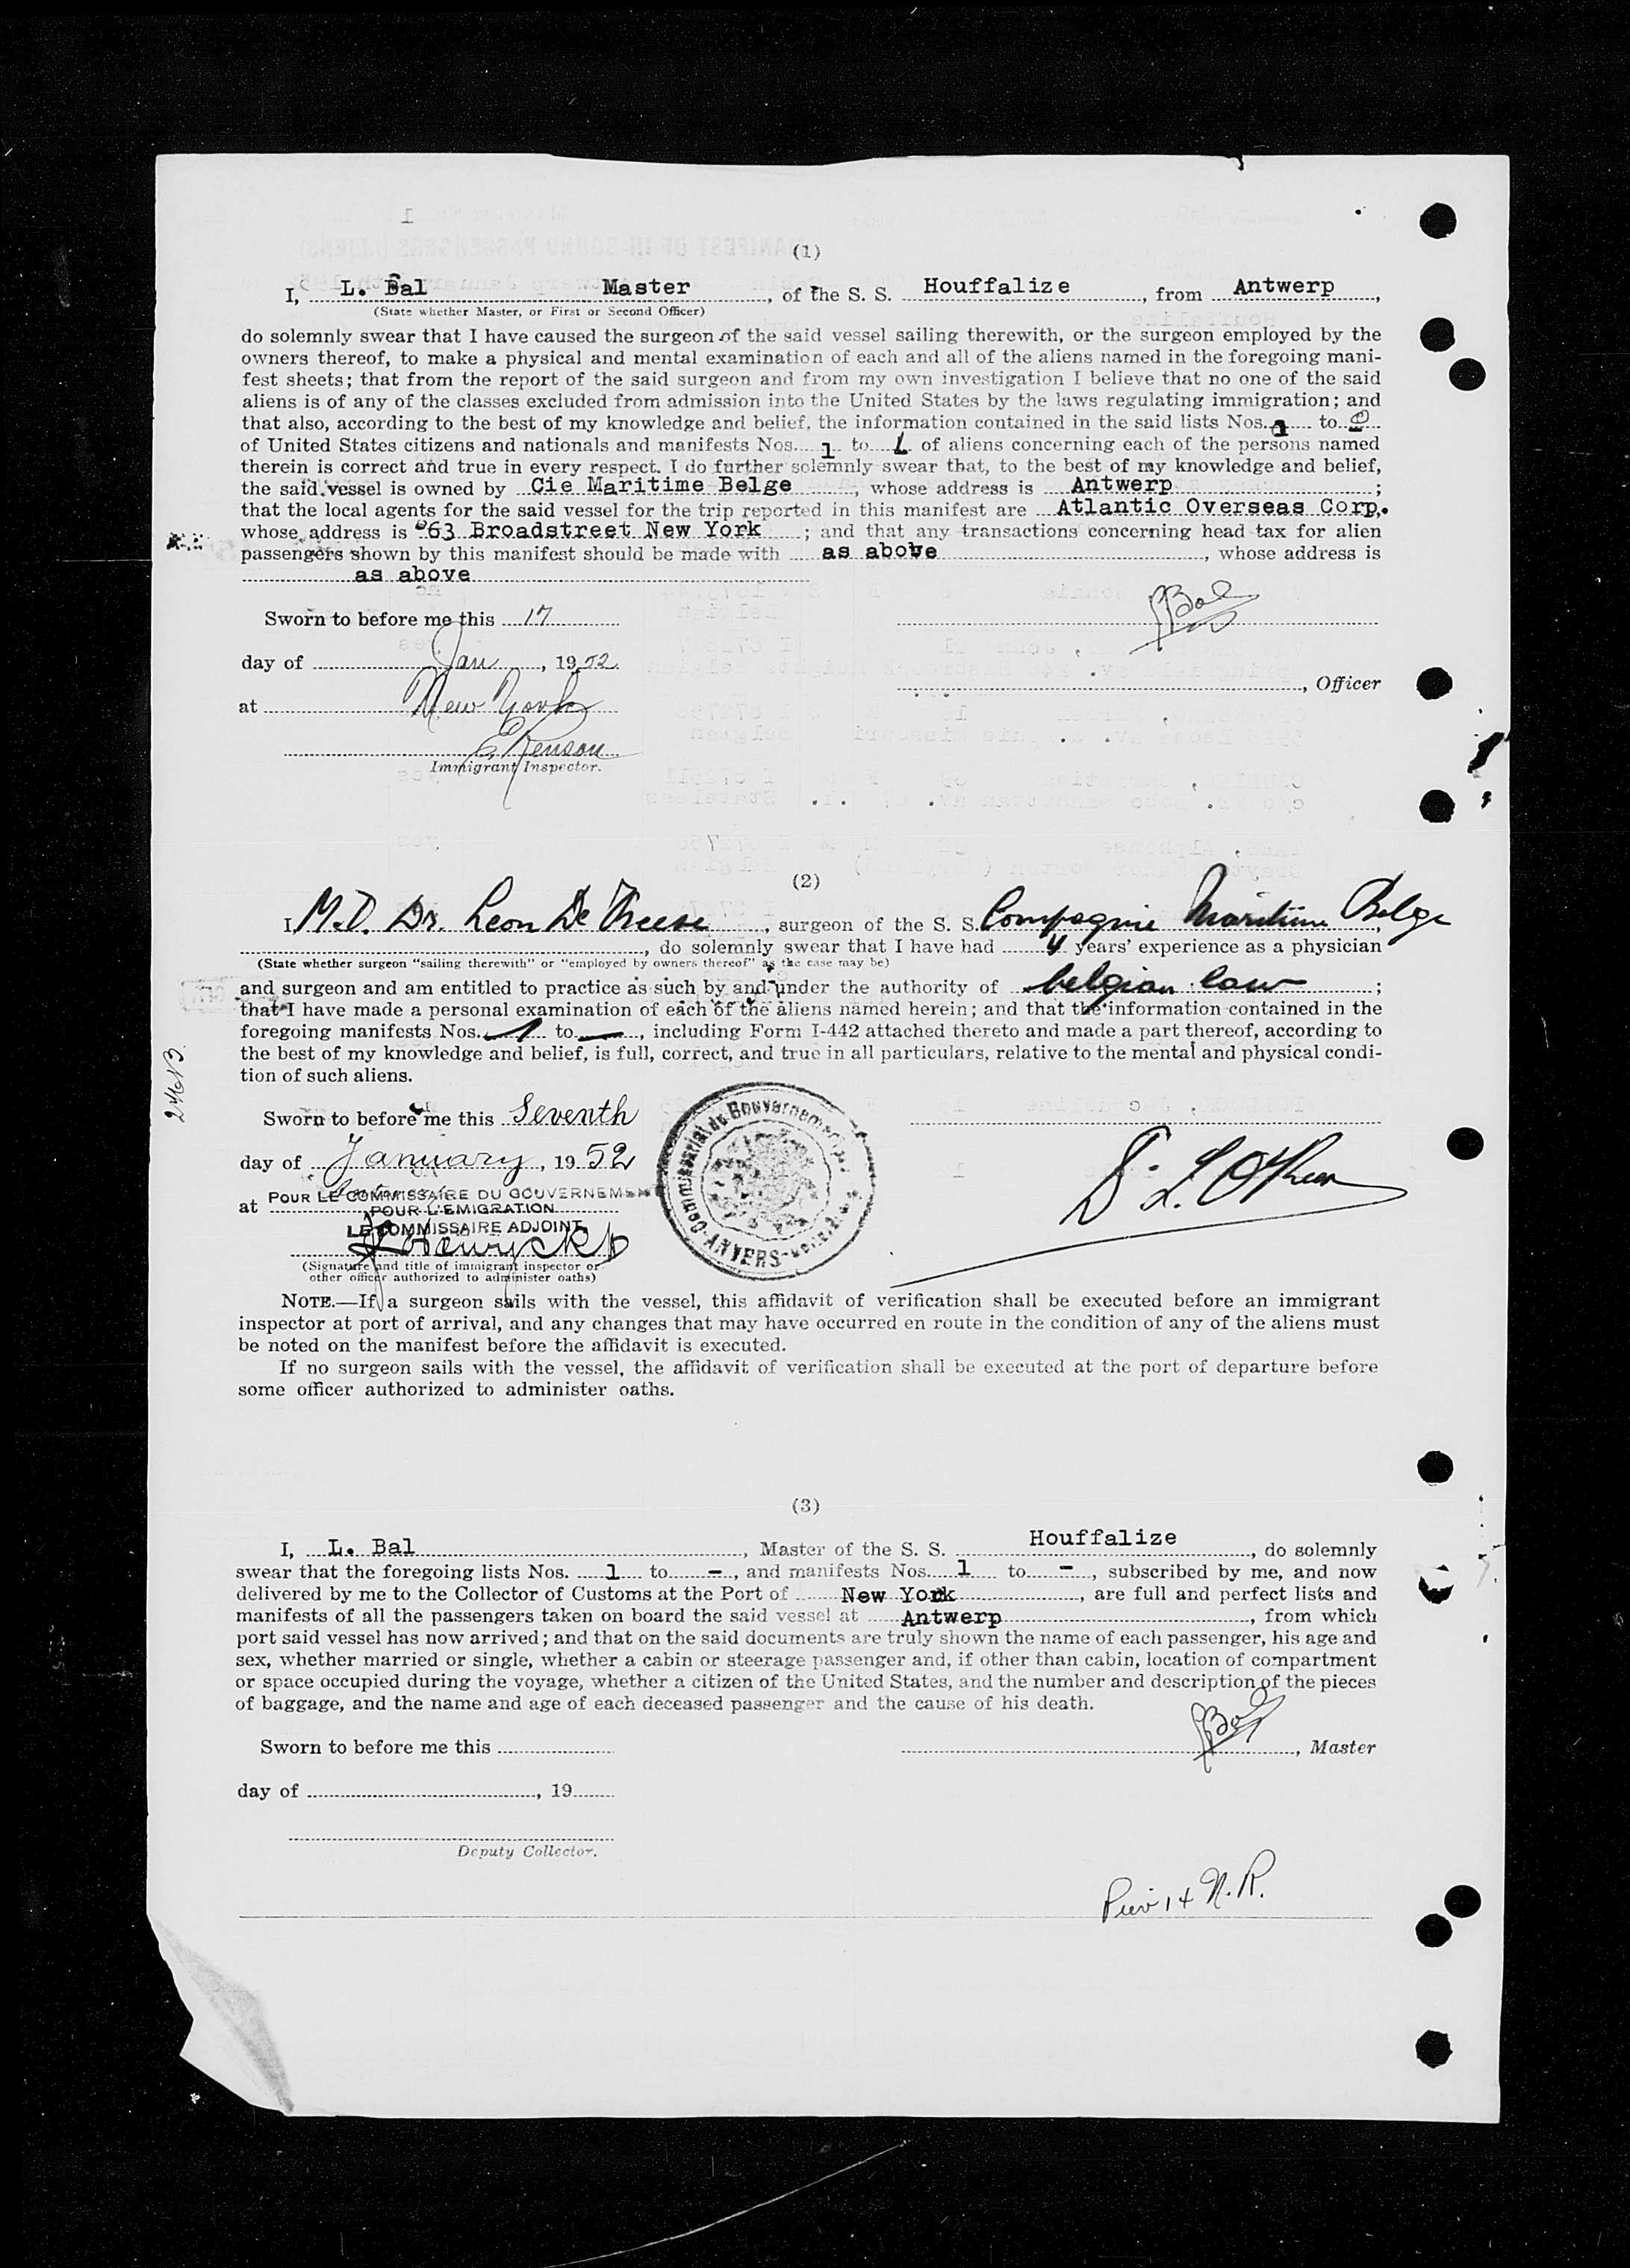 (1)
I, L. Bal Master, of the S. S. Houffalize, from Antwerp,
(State whether Master, or First or Second Officer)
do solemnly swear that I have caused the surgeon of the said vessel sailing therewith, or the surgeon employed by the
owners thereof, to make a physical and mental examination of each and all of the aliens named in the foregoing mani-
fest sheets; that from the report of the said surgeon and from my own investigation I believe that no one of the said
aliens is of any of the classes excluded from admission into the United States by the laws regulating immigration; and
that also, according to the best of my knowledge and belief, the information contained in the said lists Nos. 1 to
of United States citizens and nationals and manifests Nos. 1 to of aliens concerning each of the persons named
therein is correct and true in every respect. I do further solemnly swear that, to the best of my knowledge and belief,
the said vessel is owned by Cie Maritime Belge, whose address is Antwerp;
that the local agents for the said vessel for the trip reported in this manifest are Atlantic Overseas Corp.
whose address is 63 Broadstreet New York; and that any transactions concerning head tax for alien
passengers shown by this manifest should be made with as above, whose address is
as above
Sworn to before me this 17
Bal
day of Jan, 1952
, Officer
at New York
Immigrant Inspector.
(2)
I, M.D. Dr. Leon De, surgeon of the S. S. Compagnie Maritime Belge,
, do solemnly swear that I have had 4 years' experience as a physician
(State whether surgeon "sailing therewith" or "employed by owners thereof" as the case may be)
and surgeon and am entitled to practice as such by and under the authority of belgian law;
that I have made a personal examination of each of the aliens named herein; and that the information contained in the
foregoing manifests Nos. 1 to —, including Form I-442 attached thereto and made a part thereof, according to
the best of my knowledge and belief, is full, correct, and true in all particulars, relative to the mental and physical condi-
tion of such aliens.
Sworn to before me this Seventh
day of January, 1952
at POUR LE COMMISSAIRE DU GOUVERNEMENT
POUR L'EMIGRATION
LE COMMISSAIRE ADJOINT
Commissariat du Gouvernement
ANVERS
(Signature and title of immigrant inspector or
other officer authorized to administer oaths)
NOTE.—If a surgeon sails with the vessel, this affidavit of verification shall be executed before an immigrant
inspector at port of arrival, and any changes that may have occurred en route in the condition of any of the aliens must
be noted on the manifest before the affidavit is executed.
If no surgeon sails with the vessel, the affidavit of verification shall be executed at the port of departure before
some officer authorized to administer oaths.
(3)
I, L. Bal, Master of the S. S. Houffalize, do solemnly
swear that the foregoing lists Nos. 1 to -, and manifests Nos. 1 to -, subscribed by me, and now
delivered by me to the Collector of Customs at the Port of New York, are full and perfect lists and
manifests of all the passengers taken on board the said vessel at Antwerp, from which
port said vessel has now arrived; and that on the said documents are truly shown the name of each passenger, his age and
sex, whether married or single, whether a cabin or steerage passenger and, if other than cabin, location of compartment
or space occupied during the voyage, whether a citizen of the United States, and the number and description of the pieces
of baggage, and the name and age of each deceased passenger and the cause of his death.
Sworn to before me this
Bal, Master
day of , 19
Deputy Collector.
Pier 14 N.R.